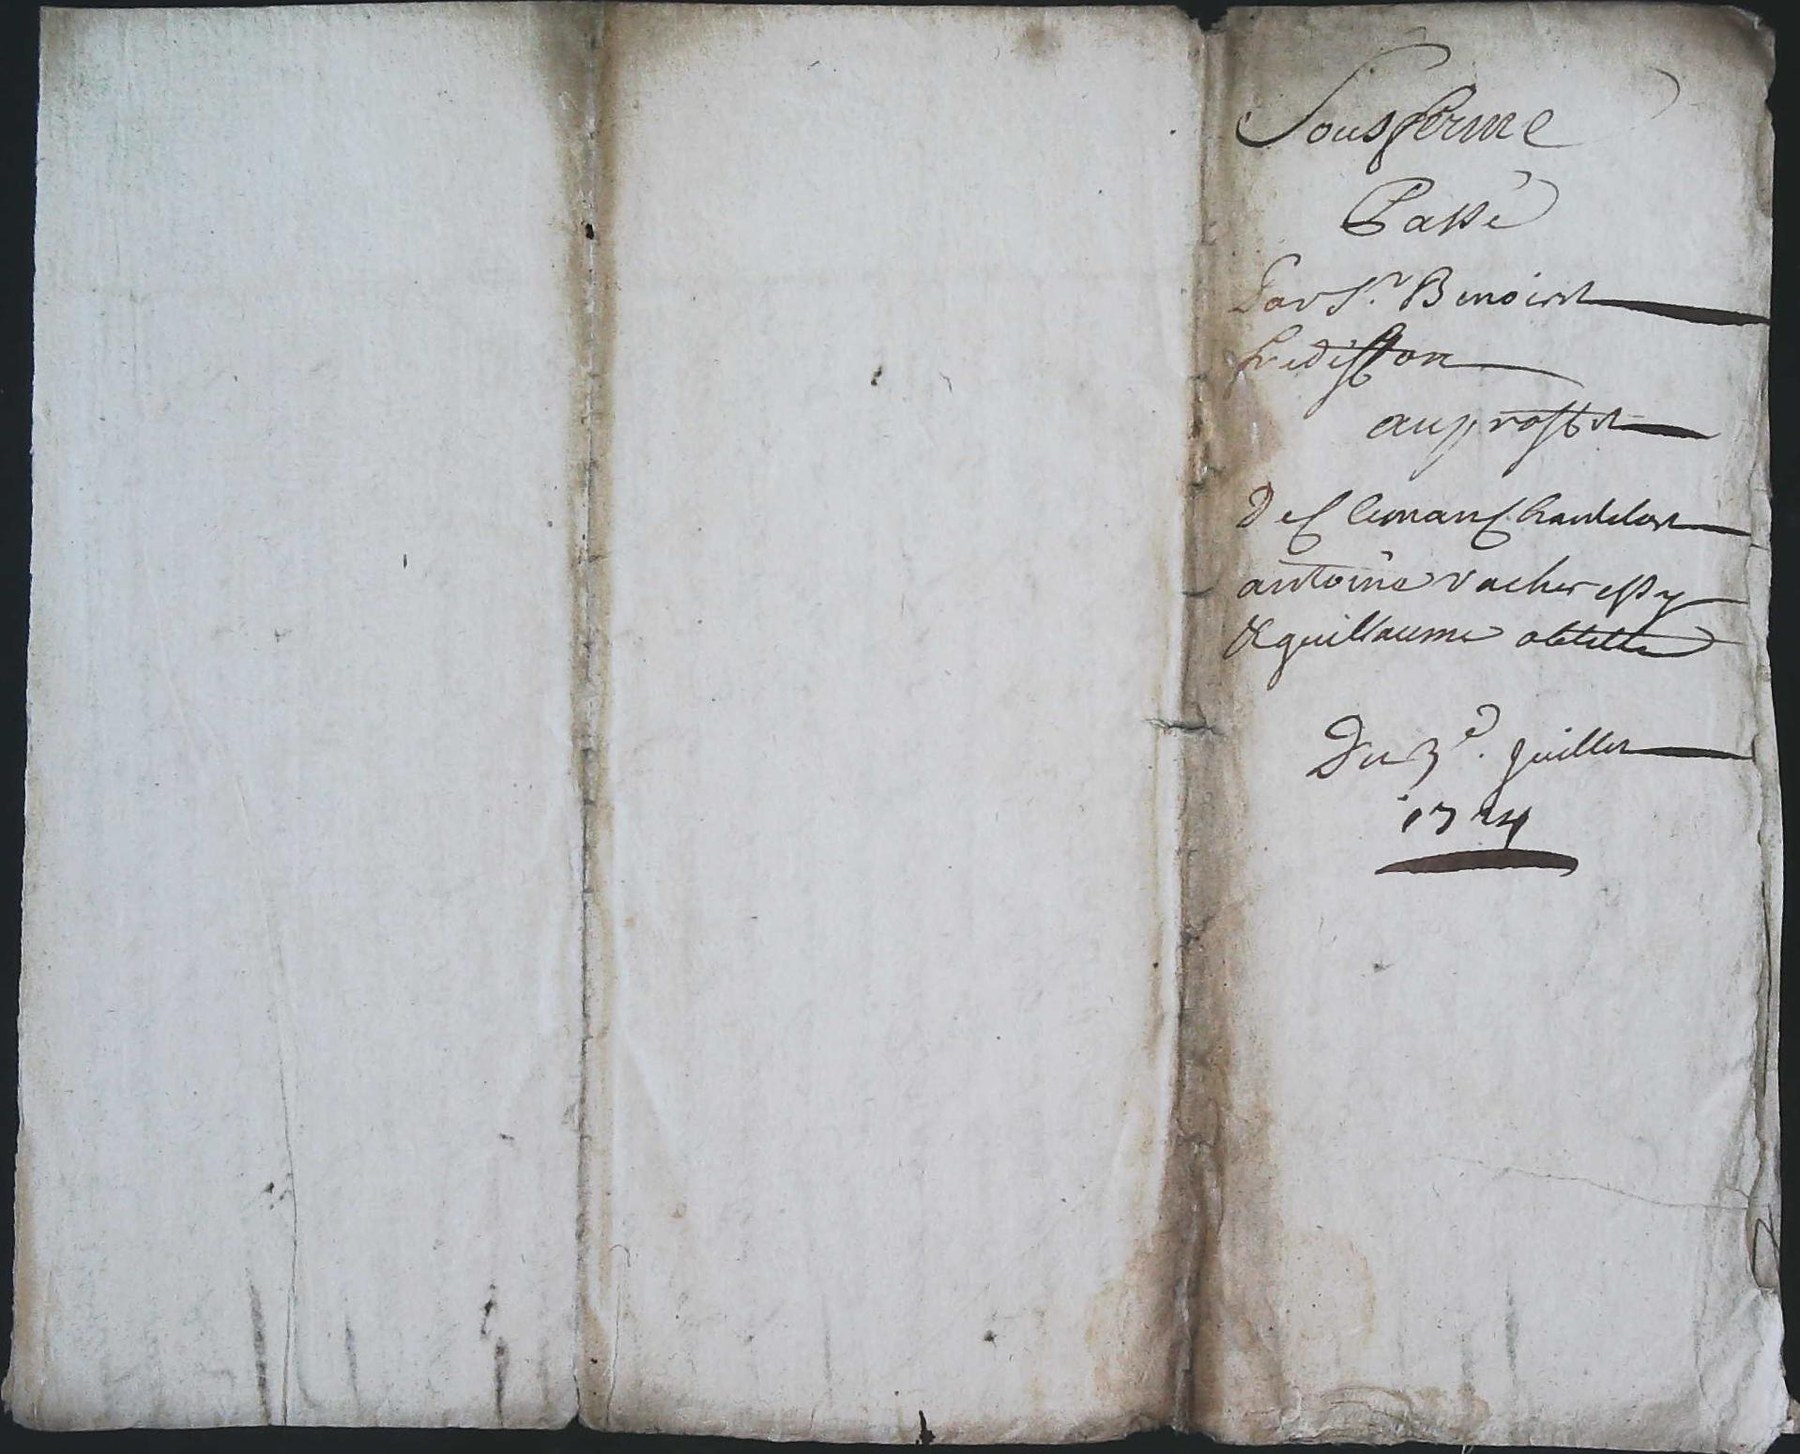 Sousferme
Passé
Par Sr. Benoist
auproffit
De Cleman Chardelon
antoine vacheressy
& guillaume
Du 3e. Juillet
1724